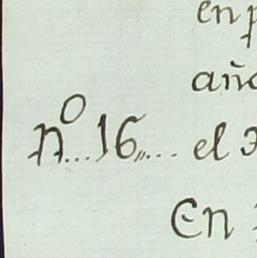 en
año
nº...16,,... el
En